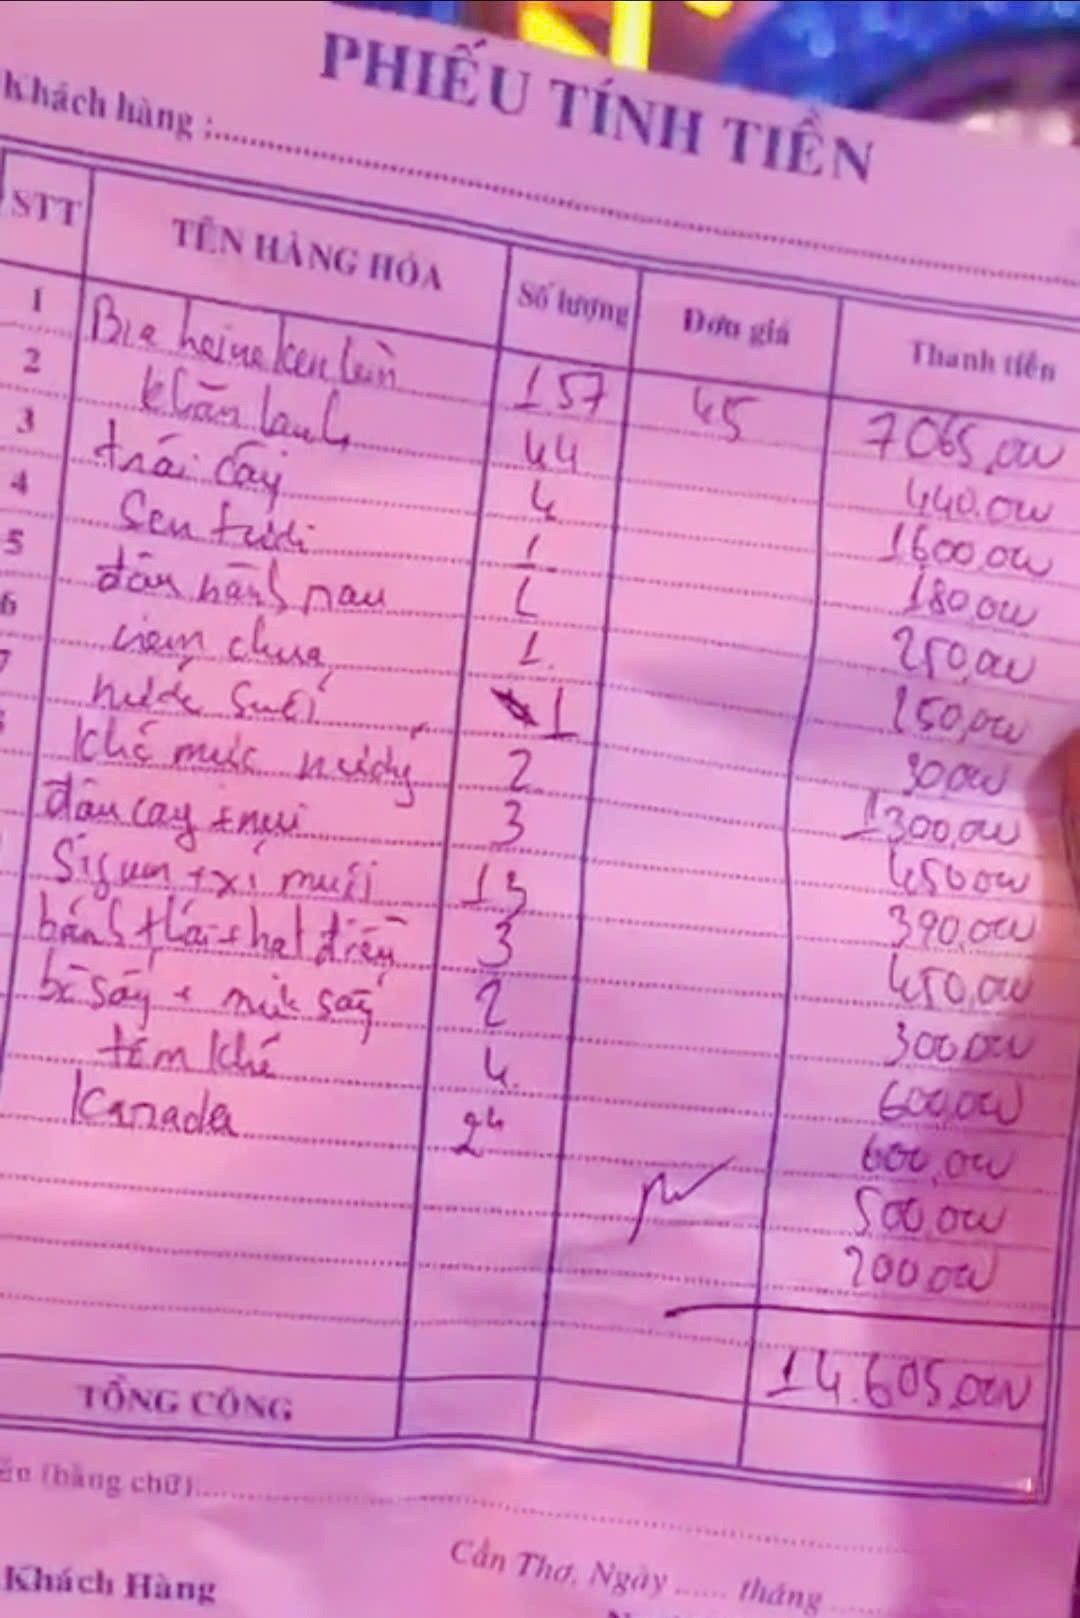 PHIẾU TÍNH TIỀN
Khách hàng :
STT TÊN HÀNG HÓA Số lượng Đơn giá Thanh tiền
1 Bia heineken lùn 157 45 7065,000
2 khăn lạnh 44 440.000
3 trái cây 4 1600,000
4 Sen tươi 1 180,000
5 1 250,000
6 chua 1. 250,000
7 nước suối 1 30,000
Khô mực nướng 2 1300,000
đậu cay + nui 3 450000
+ xí muội 13 390,000
bánh thái + hạt điều 3 450,000
bò sấy + mít sấy 2 300000
tôm khô 4. 600,000
Canada 24 600,000
500,000
200.000
14.605,000
TỔNG CỘNG
(bằng chữ)
Cần Thơ, Ngày ...... tháng
Khách Hàng